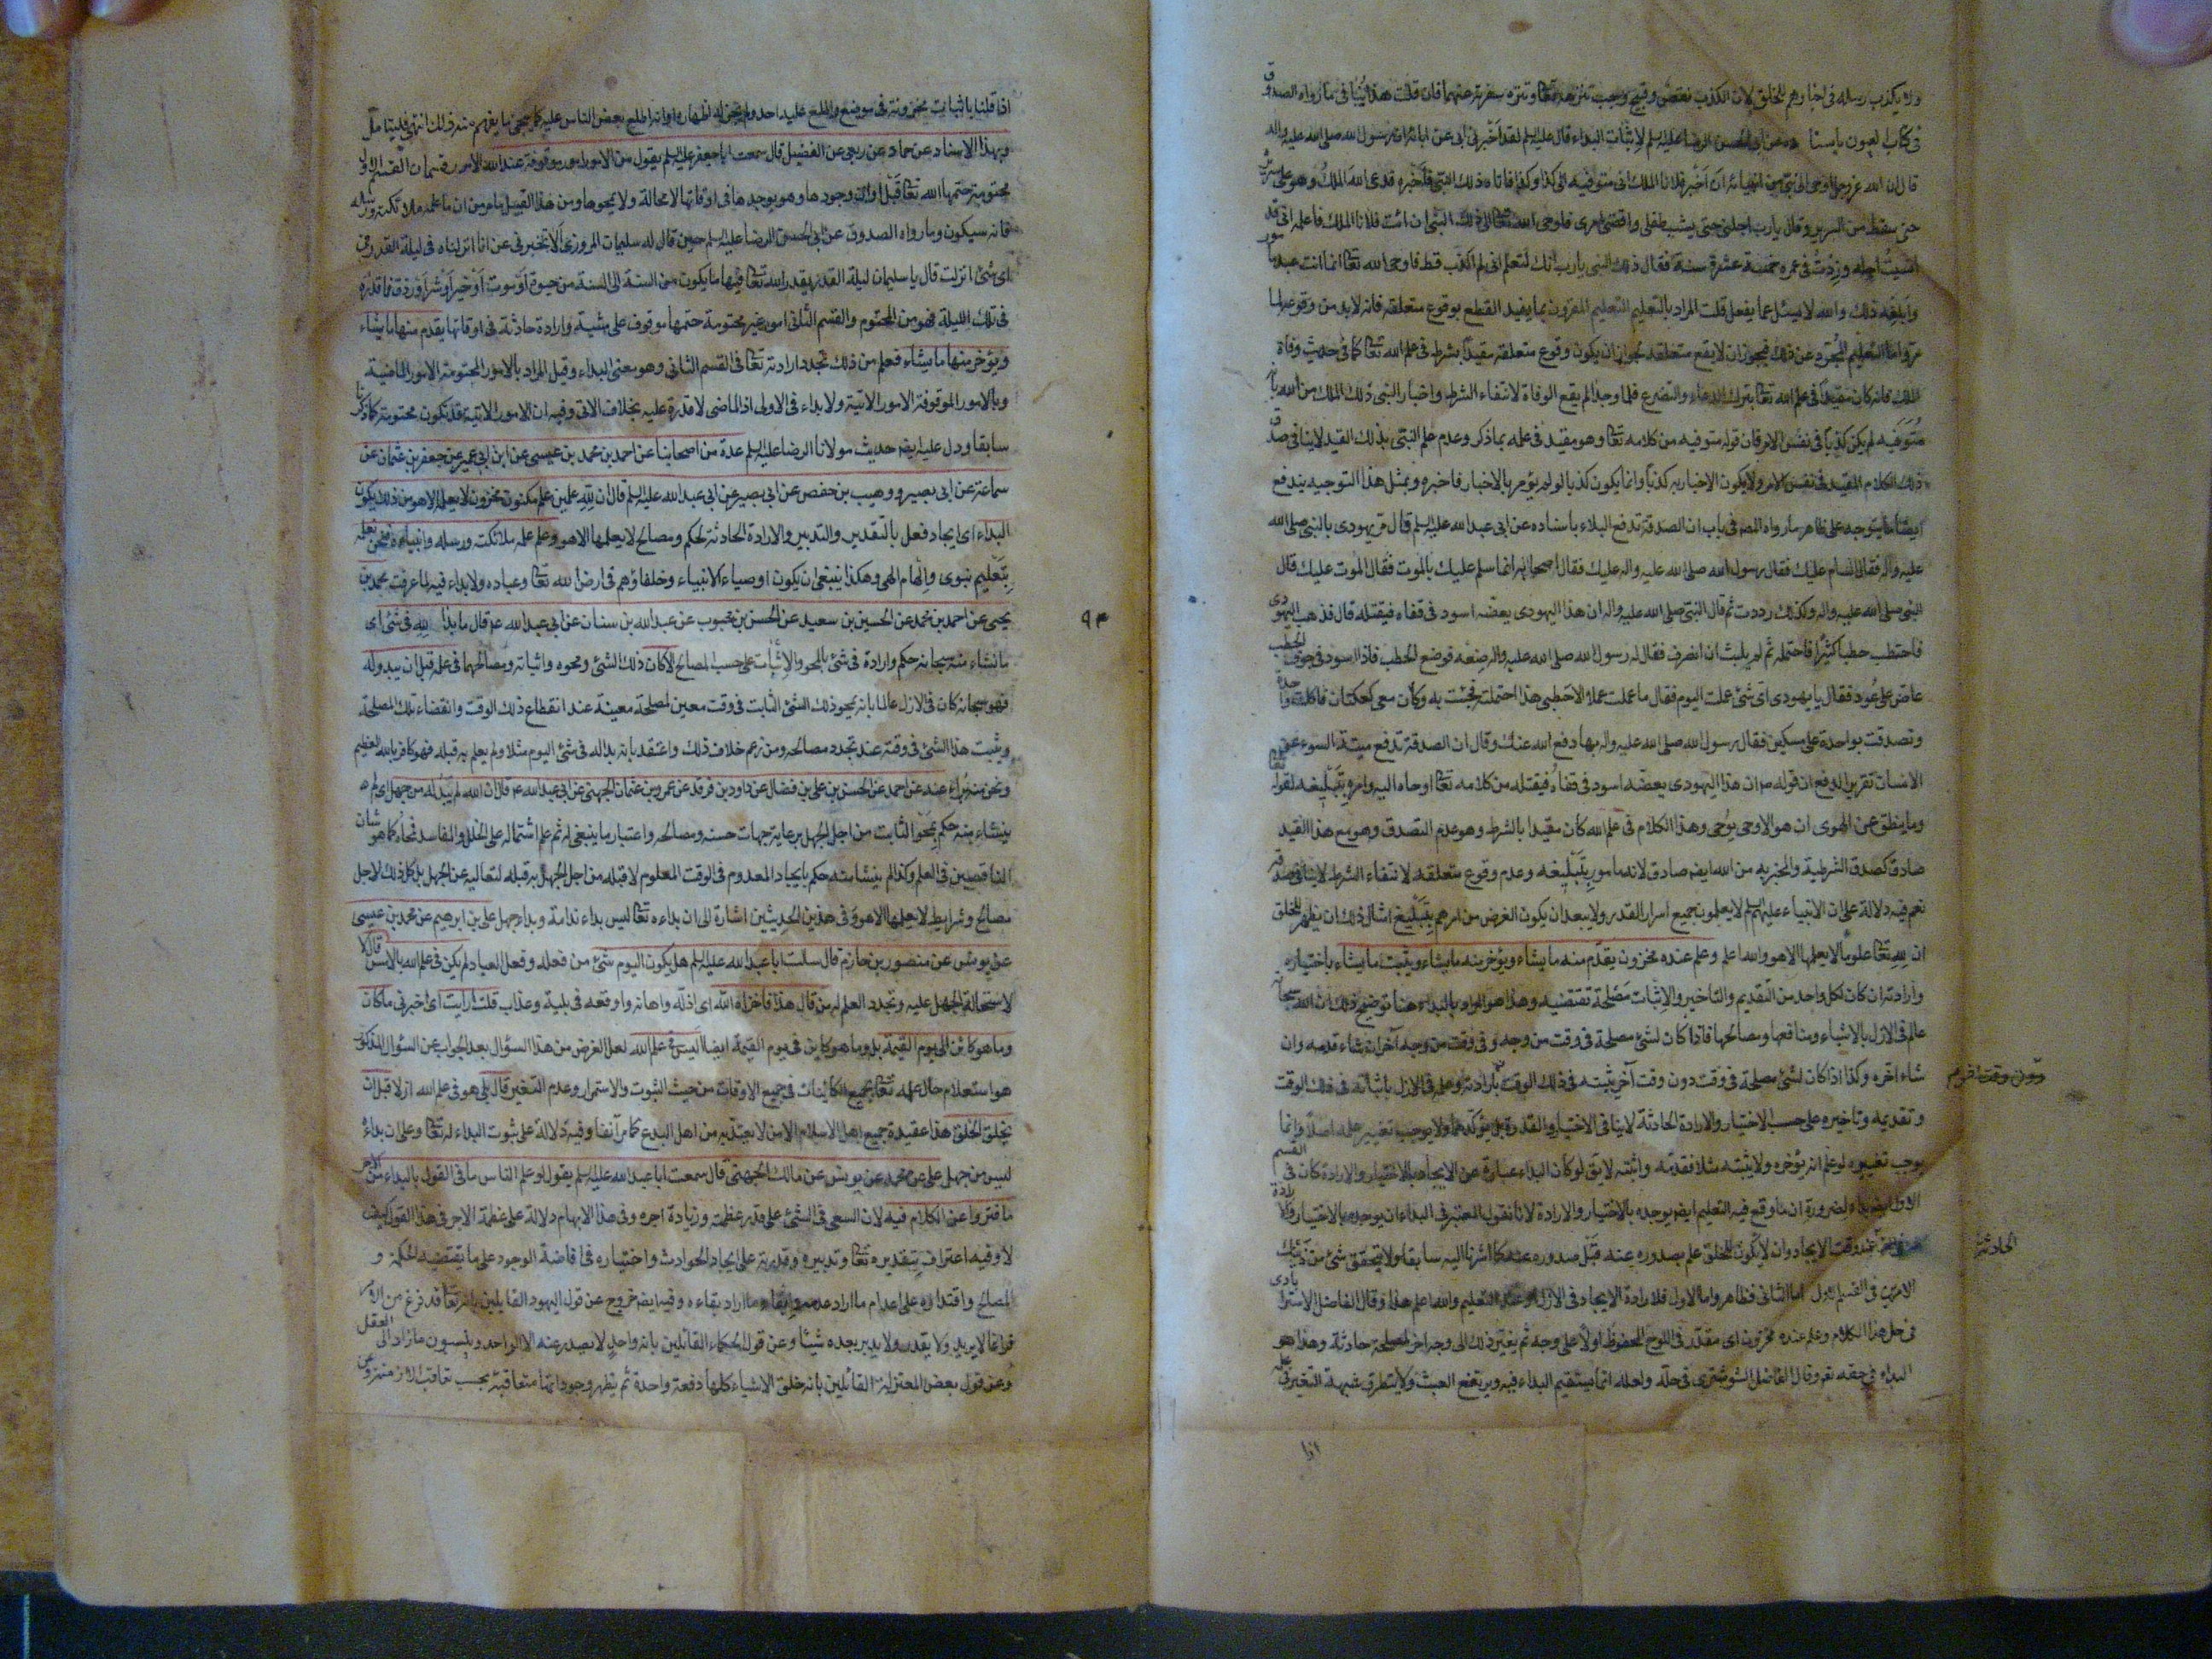 ولا يكذب رسله فى اخبارهم للخلق لان الكذب نقص وقبيح وجب تنزهه تعا وتنزه سفرته عنهما فان قلت هذا ينافى ما رواه الصدوق
فى كتاب العيون باسناده عن ابى الحسن الرضا عليه السلم لاثبات البداء قال عليه السلم لقد اخبرنى ابى عن ابائه ان رسول الله صلى الله عليه واله
قال ان الله عز وجل اوحى الى نبى من انبيائه ان اخبر فلانا الملك انى متوفيه الى كذا وكذا فاتاه ذلك النبى فاخبره فدعى الله الملك وهو على سريره
حتى سقط من السرير وقال يا رب اجلنى حتى يشب طفلى واقضى امرى فاوحى الله تعا الى ذلك النبى ان ائت فلانا الملك فاعلمه انى قد
انسيت اجله وزدت فى عمره خمسة عشرة سنة فقال ذلك النبى يا رب انك لتعلم انى لم اكذب قط فاوحى الله تعا انما انت عبد مامور
وابلغه ذلك والله لا يسئل عما يفعل قلت المراد بالتعليم التعليم المقرون بما يفيد القطع بوقوع متعلقه فانه لابد من وقوعه لما
مر واما التعليم المجرد عن ذلك فيجوز ان لا يقع متعلقه لجواز ان يكون وقوع متعلقه مقيدا بشرط فى علم الله تعا كما فى حديث وفاة
الملك فانه كان مقيدا فى علم الله تعا بترك الدعاء والتضرع فلما وجدا لم يقع الوفاة لانتفاء الشرط واخبار النبى ذلك الملك من الله بانه
متوفيه لم يكن كذبا فى نفس الامر فان قوله متوفيه من كلامه تعا وهو مقيد فى علمه بما ذكر وعدم علم النبى بذلك القيد لا ينافى صدق
ذلك الكلام المقيد فى نفس الامر ولا يكون الاخبار به كذبا وانما يكون كذبا لو لم يؤمر بالاخبار فاخبره وبمثل هذا التوجيه يندفع
ايضا ما يتوجه على ظاهر ما رواه المص فى باب ان الصدقة تدفع البلاء باسناده عن ابى عبد الله عليه السلم قال مر يهودى بالنبى صلى الله
عليه واله فقال السام عليك فقال رسول الله صلى الله عليه واله عليك فقال اصحابه انما سلم عليك بالموت فقال الموت عليك قال
النبى صلى الله عليه واله وكذلك رددت ثم قال النبى صلى الله عليه واله ان هذا اليهودى يعضه اسود فى قفاه فيقتله قال فذهب اليهودى
فاحتطب حطبا كثيرا فاحتمله ثم لم يلبث ان انصرف فقال له رسول الله صلى الله عليه واله ضعه فوضع الحطب فاذا اسود فى جوف الحطب
عاض على عود فقال يا يهودى اى شئ عملت اليوم فقال ما عملت عملا الا حطبى هذا احتملته فجئت به وكان معى كعكتان فاكلت واحدة
وتصدقت بواحدة على مسكين فقال رسول الله صلى الله عليه واله بها دفع الله عنك وقال ان الصدقة تدفع ميتة السوء عن
الانسان تقرير الدفع ان قوله ص ان هذا اليهودى يعضه اسود فى قفاه فيقتله من كلامه تعا اوحاه اليه وامره بتبليغه لقوله تعا
وما ينطق عن الهوى ان هو الا وحى يوحى وهذا الكلام فى علم الله كان مقيدا بالشرط وهو عدم التصدق وهو مع هذا القيد
صادق كصدق الشرطية والمخبر به من الله ايضا صادق لانه مامور بتبليغه وعدم وقوع متعلقه لانتفاء الشرط لا ينافى صدقه
نعم فيه دلالة على ان الانبياء عليهم السلم لا يعلمون جميع اسرار القدر ولا يبعد ان يكون الغرض من امرهم بتبليغ امثال ذلك ان يظهر للخلق
ان لله تعا علوما لا يعلمها الا هو والله اعلم وعلم عنده مخزون يقدم منه ما يشاء ويؤخر منه ما يشاء ويثبت ما يشاء باختياره
وارادته ان كان لكل واحد من التقديم والتاخير والاثبات مصلحة تقتضيه وهذا هو المراد بالبداء هنا توضيح ذلك ان الله سبحانه
عالم فى الازل بالاشياء ومنافعها ومصالحها فاذا كان لشئ مصلحة فى وقت من وجه وفى وقت من وجه آخر ان شاء قدمه وان
شاء اخره وكذا اذا كان لشئ مصلحة فى وقت دون وقت آخر يثبته فى ذلك الوقت بارادته وعلمه فى الازل باثباته فى ذلك الوقت
وتقديمه وتاخيره على حسب الاختيار والارادة الحادثة لا ينافى الاختيار والقدرة بل يؤكدهما ولا يوجب تغيير علمه اصلا وانما
يوجب تغييره لو علم انه يؤخره ولا يثبته مثلا فقدمه واثبته لا يق لو كان البداء عبارة عن الايجاد بالاختيار والارادة كان فى القسم
الاول ايضا بداء لضرورة ان ما وقع فيه التعليم ايضا يوجده بالاختيار والارادة لانا نقول المعتبر فى البداء ان يوجده بالاختيار والارادة
الحادثة
عند وقت الايجاد وان لا يكون للخلق علم بصدوره عنه قبل صدوره عنه كما اشرنا اليه سابقا ولا يتحقق شئ من ذينك
الامرين فى القسم الاول اما الثانى فظاهر واما الاول فلارادة الايجاد فى الازل او عند التعليم والله اعلم هذا وقال الفاضل الاسترابادى
فى حل هذا الكلام وعلم عنده مخزون اى مقدر فى اللوح المحفوظ اولا على وجه ثم يغير ذلك الى وجه اخر لمصلحة حادثة وهذا هو
البداء فى حقه تعا وقال الفاضل الشوشترى فى حله ولعله انما يستقيم البداء فيه ويرتفع العبث ولا يتطرق شبهة التغير فى علمه
اذا
اذا قلنا باثبات مخزونه فى موضع واطلع عليه احد ولم يجز له اظهاره او انه اطلع بعض الناس عليه كما يجئ ما يفهم منه ذلك انتهى فليتامل
وبهذا الاسناد عن حماد عن ربعى عن الفضيل قال سمعت ابا جعفر عليه السلم يقول من الامور امور موقوفة عند الله الامور قسمان القسم الاول
محتومة حتمها الله تعا قبل اوان وجودها وهو يوجدها فى اوقاتها لا محالة ولا يمحوها ومن هذا القبيل ما مر من ان ما علمه ملائكته ورسله
فانه سيكون وما رواه الصدوق عن ابى الحسن الرضا عليه السلم حين قال له سليمان المروزى الا تخبرنى عن انا انزلناه فى ليلة القدر فى
اى شئ انزلت قال يا سليمان ليلة القدر يقدر الله تعا فيها ما يكون من السنة الى السنة من حيوة او موت او خير او شر او رزق فما قدره
فى تلك الليلة فهو من المحتوم والقسم الثانى امور غير محتومة حتمها موقوف على مشية وارادة حادثة فى اوقاتها يقدم منها ما يشاء
ويؤخر منها ما يشاء فعلم من ذلك تجدد ارادته تعا فى القسم الثانى وهو معنى البداء وقيل المراد بالامور المحتومة الامور الماضية
وبالامور الموقوفة الامور الاتية ولا بداء فى الاولى اذ الماضى لا قدرة عليه بخلاف الاتى وفيه ان الامور الاتية قد تكون محتومة كما ذكرنا
سابقا ودل عليه ايضا حديث مولانا الرضا عليه السلم عدة من اصحابنا عن احمد بن محمد بن عيسى عن ابن ابى عمير عن جعفر بن عثمان عن
سماعة عن ابى بصير ووهيب بن حفص عن ابى بصير عن ابى عبد الله عليه السلم قال ان لله علمين علم مكنون مخزون لا يعلمه الا هو من ذلك يكون
البداء اى ايجاد فعل بالتقدير والتدبير والارادة الحادثة لحكم ومصالح لا يعلمها الا هو وعلم علمه ملائكته ورسله وانبياءه فنحن نعلمه
بتعليم نبوى والهام الهى وهكذا ينبغى ان يكون اوصياء الانبياء وخلفاؤهم فى ارض الله تعا وعباده ولا بداء فيه لما عرفت محمد بن
يحيى عن احمد بن محمد عن الحسين بن سعيد عن الحسن بن محبوب عن عبد الله بن سنان عن ابى عبد الله ع قال ما بدا لله فى شئ اى
ما نشاء منه سبحانه حكم وارادة فى شئ بالمحو والاثبات على حسب المصالح الا كان ذلك الشئ ومحوه واثباته ومصالحهما فى علمه قبل ان يبدو له
فهو سبحانه كان فى الازل عالما بانه يمحو ذلك الشئ الثابت فى وقت معين لمصلحة معينة عند انقطاع ذلك الوقت وانقضاء تلك المصلحة
ويثبت هذا الشئ فى وقته عند تجدد مصالحه ومن زعم خلاف ذلك واعتقد بانه بدا له فى شئ اليوم مثلا ولم يعلم به قبله فهو كافر بالله العظيم
ونحن منه براء عنه عن احمد عن الحسن بن على بن فضال عن داود بن فرقد عن عمرو بن عثمان الجهنى عن ابى عبد الله ع قال ان الله لم يبد له من جهل اى لم
ينشاء منه حكم بمحو الثابت من اجل الجهل برعاية جهات حسنه ومصالحه واعتبار ما ينبغى له ثم علم اشتماله على الخلل والمفاسد فمحاه كما هو شان
الناقصين فى العلم وكذا لم ينشا منه حكم بايجاد المعدوم فى الوقت المعلوم لا قبله من اجل الجهل به قبله لتعاليه عن الجهل بل كل ذلك لاجل
مصالح وشرايط لا يعلمها الا هو وفى هذين الحديثين اشارة الى ان بداءه تعا ليس بداء ندامة وبداء جهل على بن ابرهيم عن محمد بن عيسى
عن يونس عن منصور بن حازم قال سالت ابا عبد الله عليه السلم هل يكون اليوم شئ من فعله وفعل العباد لم يكن فى علم الله بالامس قال لا
لاستحالة الجهل عليه وتجدد العلم له من قال هذا فاخزاه الله اى اذله واهانه واوقعه فى بلية وعذاب قلت ارايت اى اخبرنى ما كان
وما هو كائن الى يوم القيمة بل وما هو كاين فى يوم القيمة ايضا اليس فى علم الله لعل الغرض من هذا السؤال بعد الجواب عن السؤال المذكور
هو استعلام حال علمه تعا بجميع الكائنات فى جميع الاوقات من حيث الثبوت والاستمرار وعدم التغير قال بلى هو فى علم الله ازلا قبل ان
يخلق الخلق هذا عقيدة جميع اهل الاسلام الا من لا يعتد به من اهل البدع كما مر آنفا وفيه دلالة على ثبوت البداء له تعا وعلى ان بداءه
ليس من جهل على عن محمد عن يونس عن مالك الجهنى قال سمعت ابا عبد الله عليه السلم يقول لو علم الناس ما فى القول بالبداء من الاجر
ما فتروا عن الكلام فيه لان السعى فى الشئ على قدر عظمته وزيادة اجره وفى هذا الابهام دلالة على عظمة الاجر فى هذا القول كيف
لا وفيه اعتراف بتقديره تعا وتدبيره وقدرته على ايجاد الحوادث واختياره فى افاضة الوجود على ما يقتضيه الحكمة و
المصالح واقتداره على اعدام ما اراد عدمه وابقاء ما اراد بقاءه وفيه ايضا خروج عن قول اليهود القايلين بانه تعا قد فرغ من الامر
فراغا لا يريد ولا يقدر ولا يدبر بعده شيئا وعن قول الحكماء القائلين بانه واحد لا يصدر عنه الا الواحد وينسبون ما زاد الى العقل
وعن قول بعض المعتزلة القائلين بانه خلق الاشياء كلها دفعة واحدة ثم يظهر وجوداتها متعاقبة بحسب تعاقب الازمنة وعن
٩٣